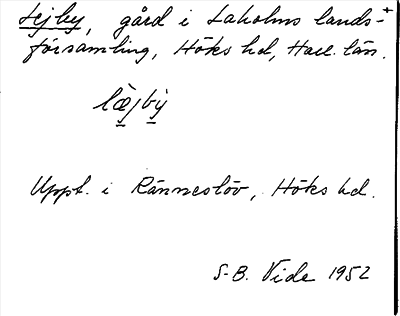 Lejby, gård i Laholms lands- +
församling, Höks hd, Hall. län.
lèjbỳ
Uppt. i Ränneslöv, Höks hd.
S-B. Vide 1952